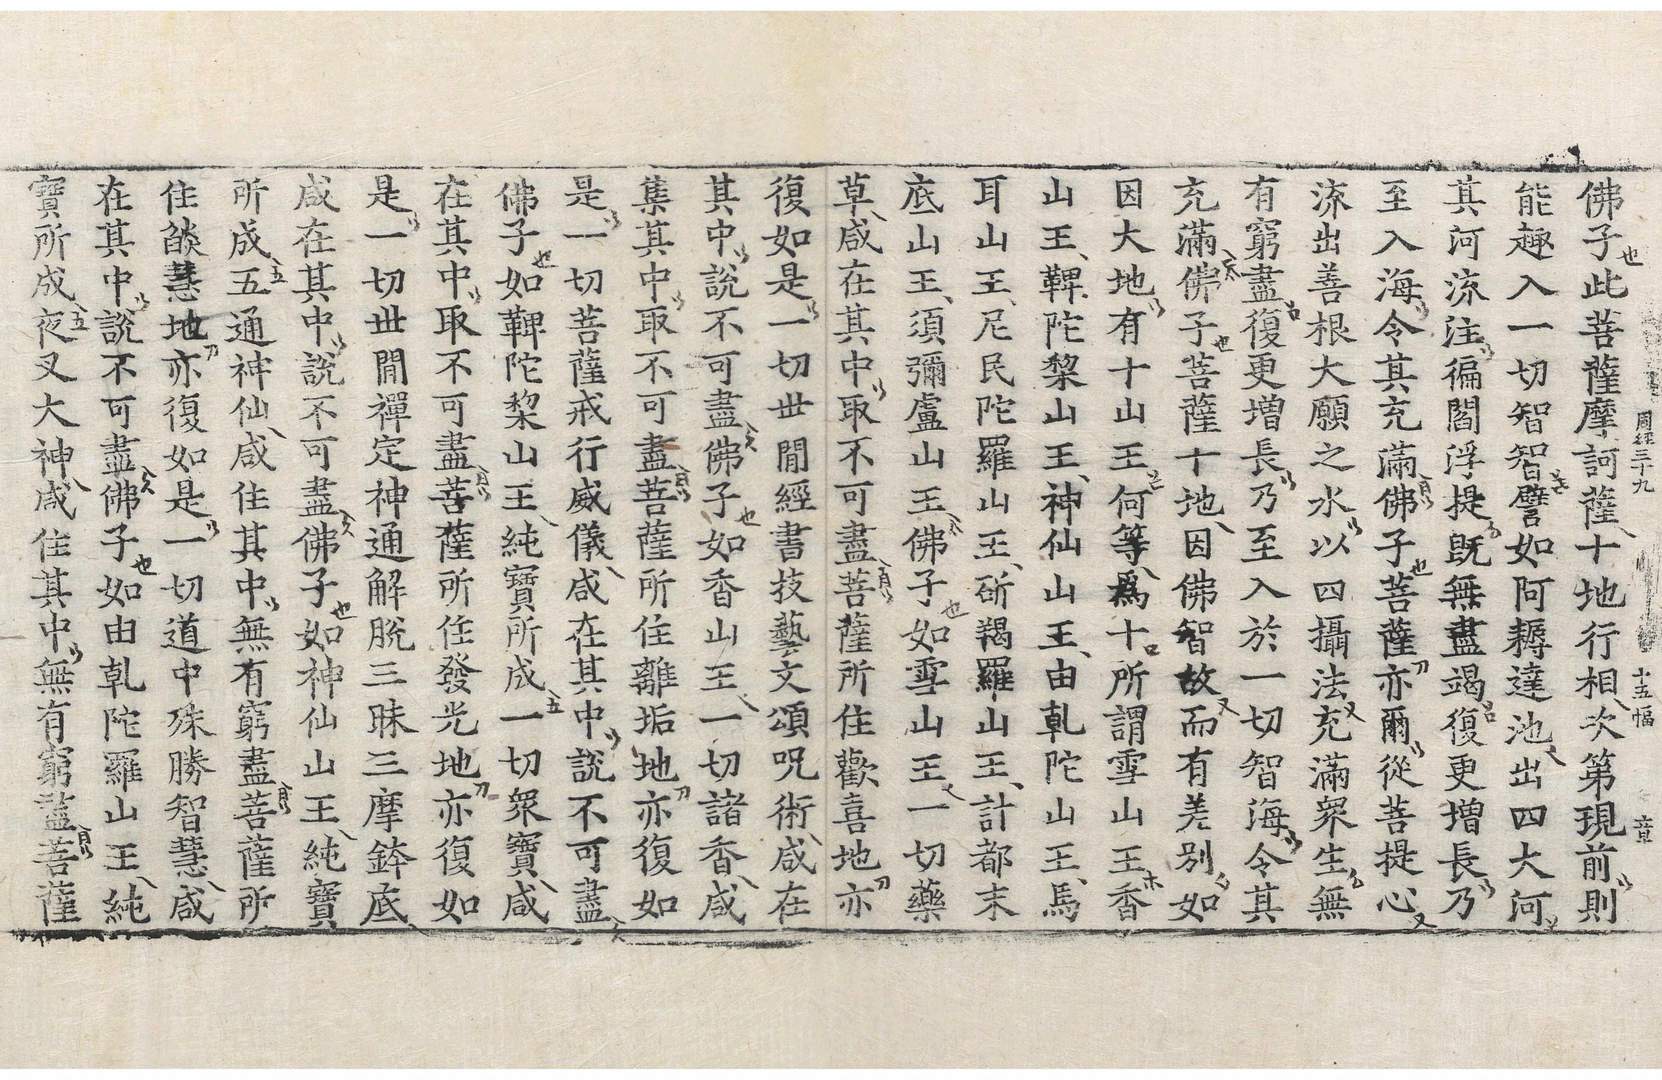 周經三十九 十五幅 章
佛子此菩薩摩訶薩十地行相次第現前則
能趣入一切智智譬如阿耨達池出四大河
其河流注徧閻浮提旣無盡竭復更增長乃
至入海令其充滿佛子菩薩亦爾從菩提心
流出善根大願之水以四攝法充滿衆生無
有窮盡復更增長乃至入於一切智海令其
充滿佛子菩薩十地因佛智故而有差別如
因大地有十山王何等爲十所謂雪山王香
山王鞞陀棃山王神仙山王由乹陀山王馬
耳山王尼民陀羅山王斫羯羅山王計都末
底山王須彌盧山王佛子如雪山王一切藥
草咸在其中取不可盡菩薩所住歡喜地亦
復如是一切世閒經書技藝文頌呪術咸在
其中說不可盡佛子如香山王一切諸香咸
集其中取不可盡菩薩所住離垢地亦復如
是一切菩薩戒行威儀咸在其中說不可盡
佛子如鞞陀棃山王純寶所成一切衆寶咸
在其中取不可盡菩薩所住發光地亦復如
是一切世閒禪定神通解脫三昧三摩鉢底
咸在其中說不可盡佛子如神仙山王純寶
所成五通神仙咸住其中無有窮盡菩薩所
住燄慧地亦復如是一切道中殊勝智慧咸
在其中說不可盡佛子如由乹陀羅山王純
寶所成夜叉大神咸住其中無有窮盡菩薩